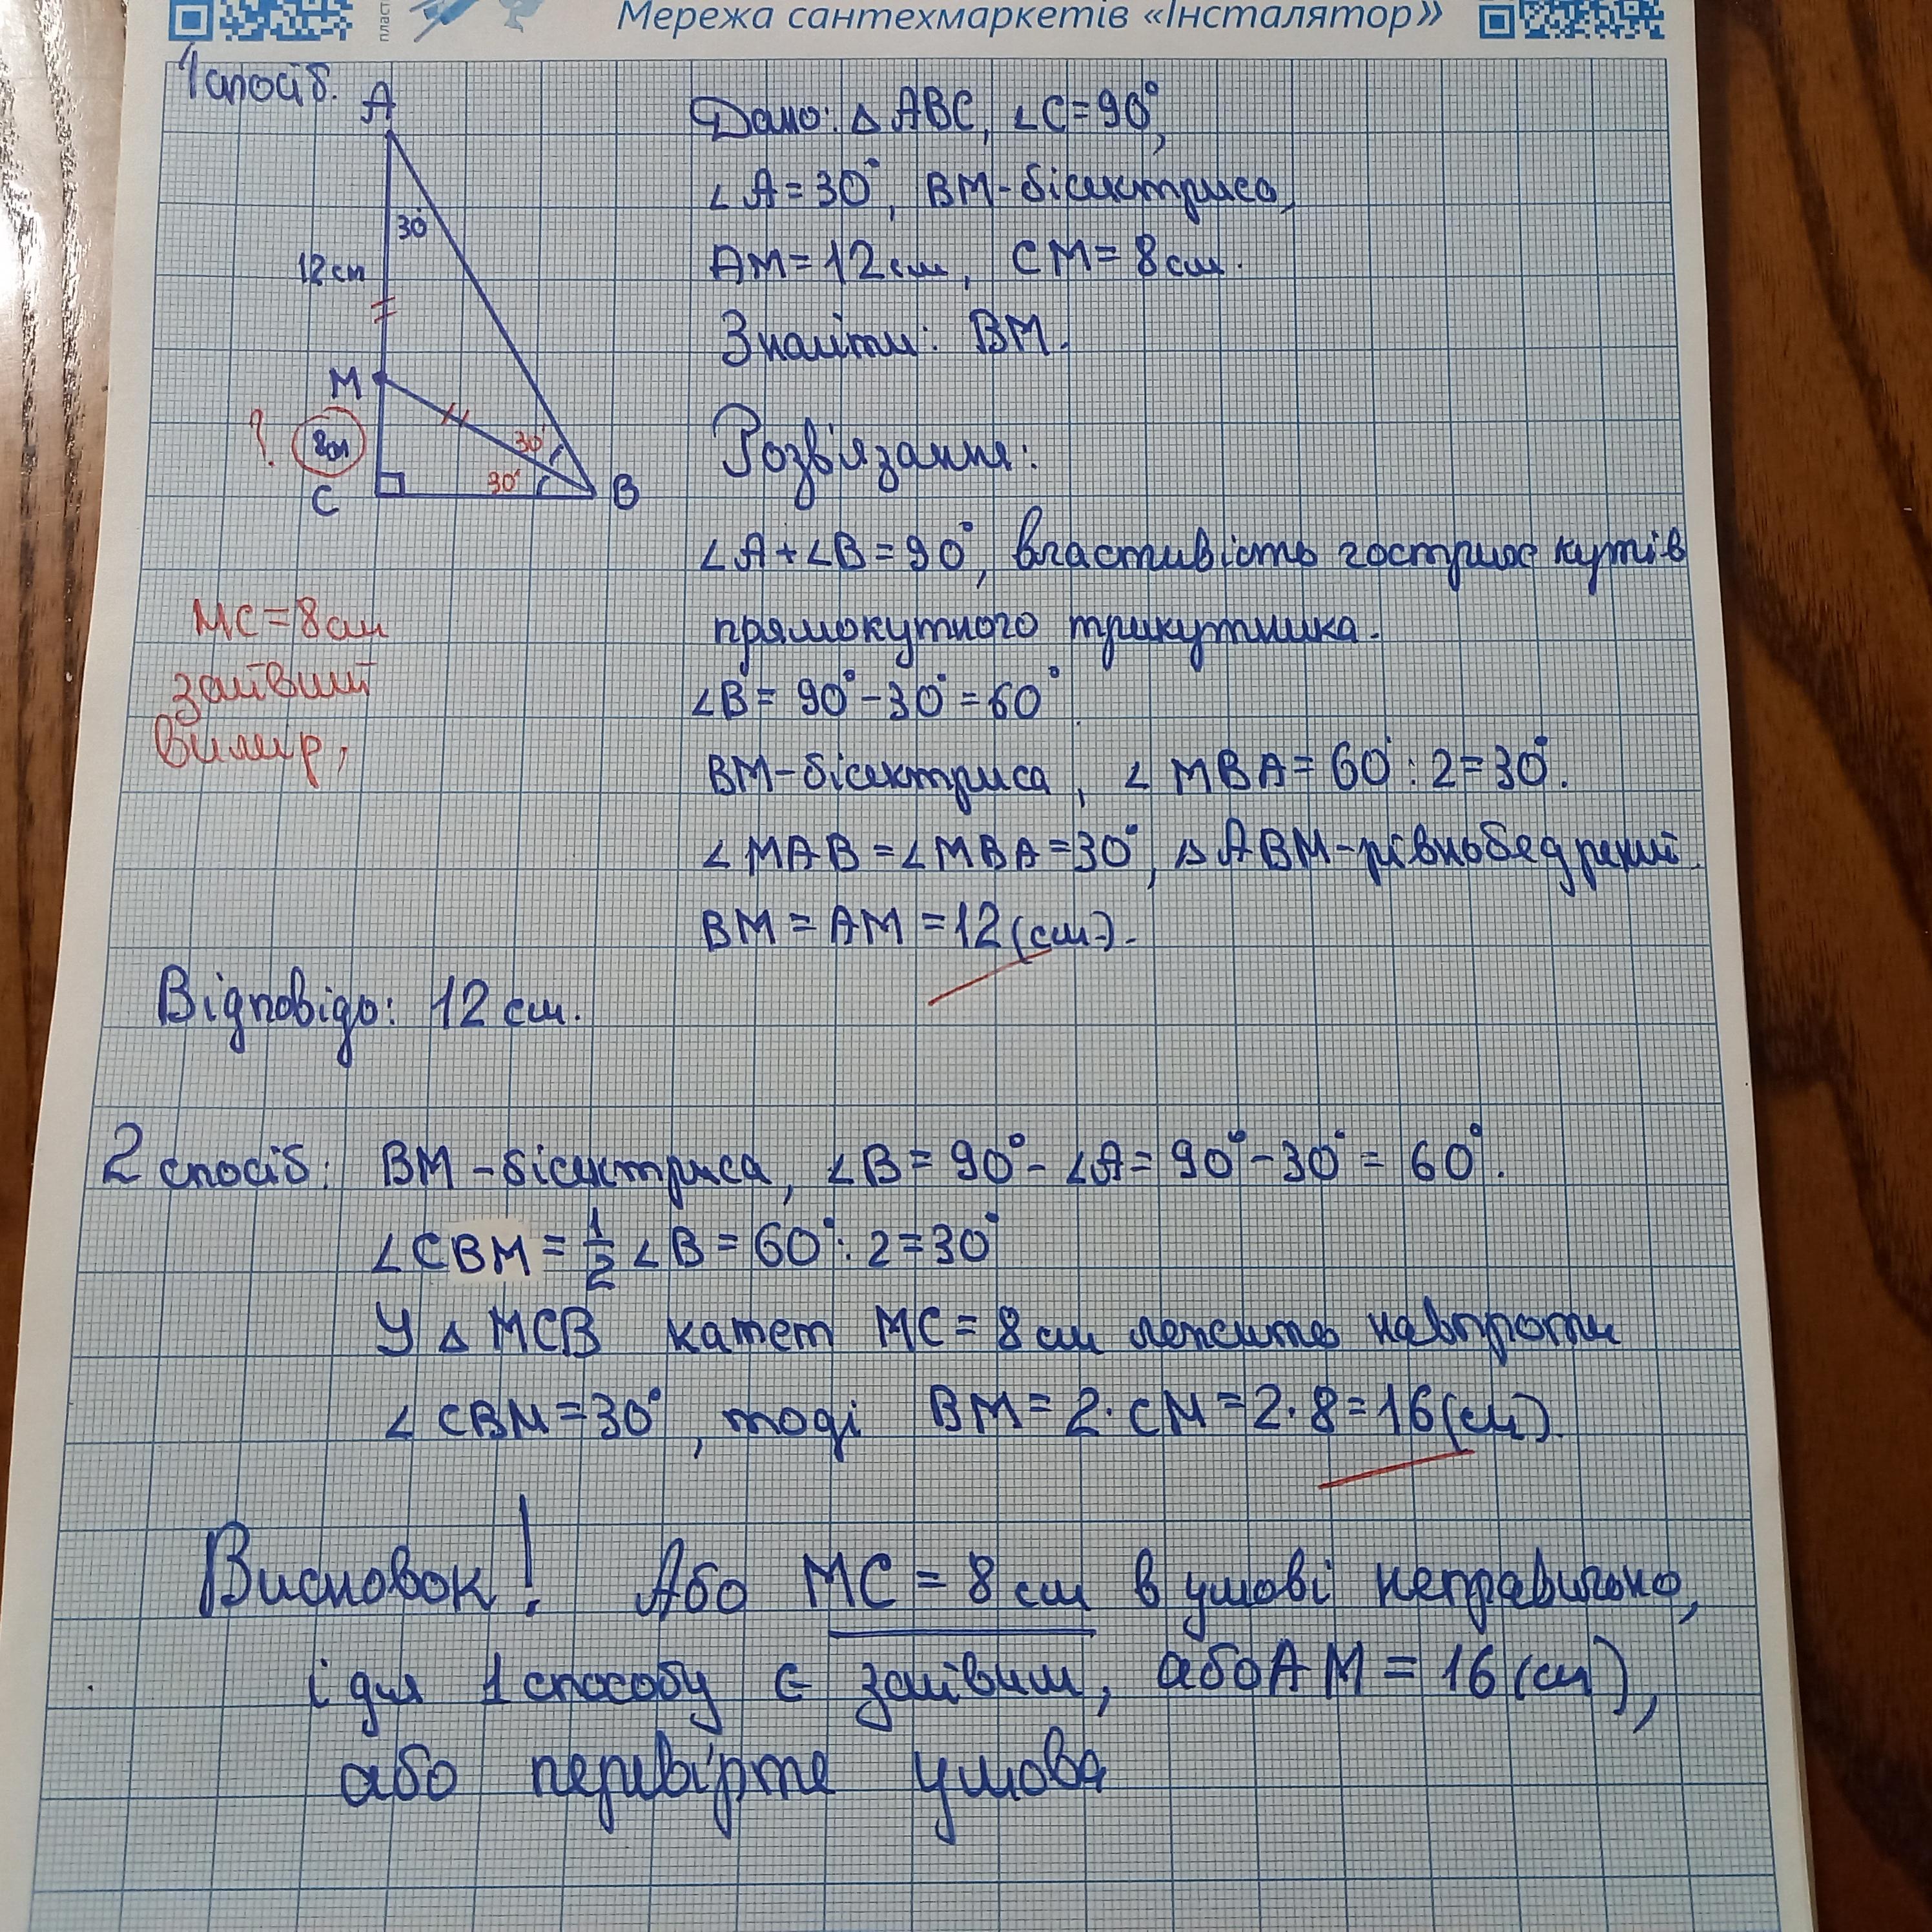 Мережа сантехмаркетів «Інсталятор»
1 спосіб.
A
30°
12 см
M
? 8 см
30°
30°
C
B
MC = 8 см
зайвий
вимір,
Дано: △ ABC, ∠C = 90°,
∠A = 30°, BM - бісектриса,
AM = 12 см, CM = 8 см.
Знайти: BM.
Розв'язання:
∠A + ∠B = 90°, властивість гострих кутів
прямокутного трикутника.
∠B = 90° - 30° = 60°.
BM - бісектриса, ∠MBA = 60° : 2 = 30°.
∠MAB = ∠MBA = 30°, △ ABM - рівнобедрений.
BM = AM = 12 (см).
Відповідь: 12 см.
2 спосіб: BM - бісектриса, ∠B = 90° - ∠A = 90° - 30° = 60°.
∠CBM = 1/2 ∠B = 60° : 2 = 30°
У △ MCB катет MC = 8 см лежить навпроти
∠CBM = 30°, тоді BM = 2 · CM = 2 · 8 = 16 (см).
Висновок! Або MC = 8 см в умові неправильно,
і для 1 способу є зайвим, або AM = 16 (см),
або перевірте умова